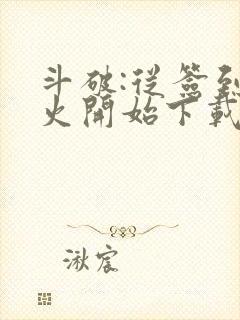 斗破:從簽到
火開始下載
湫宸